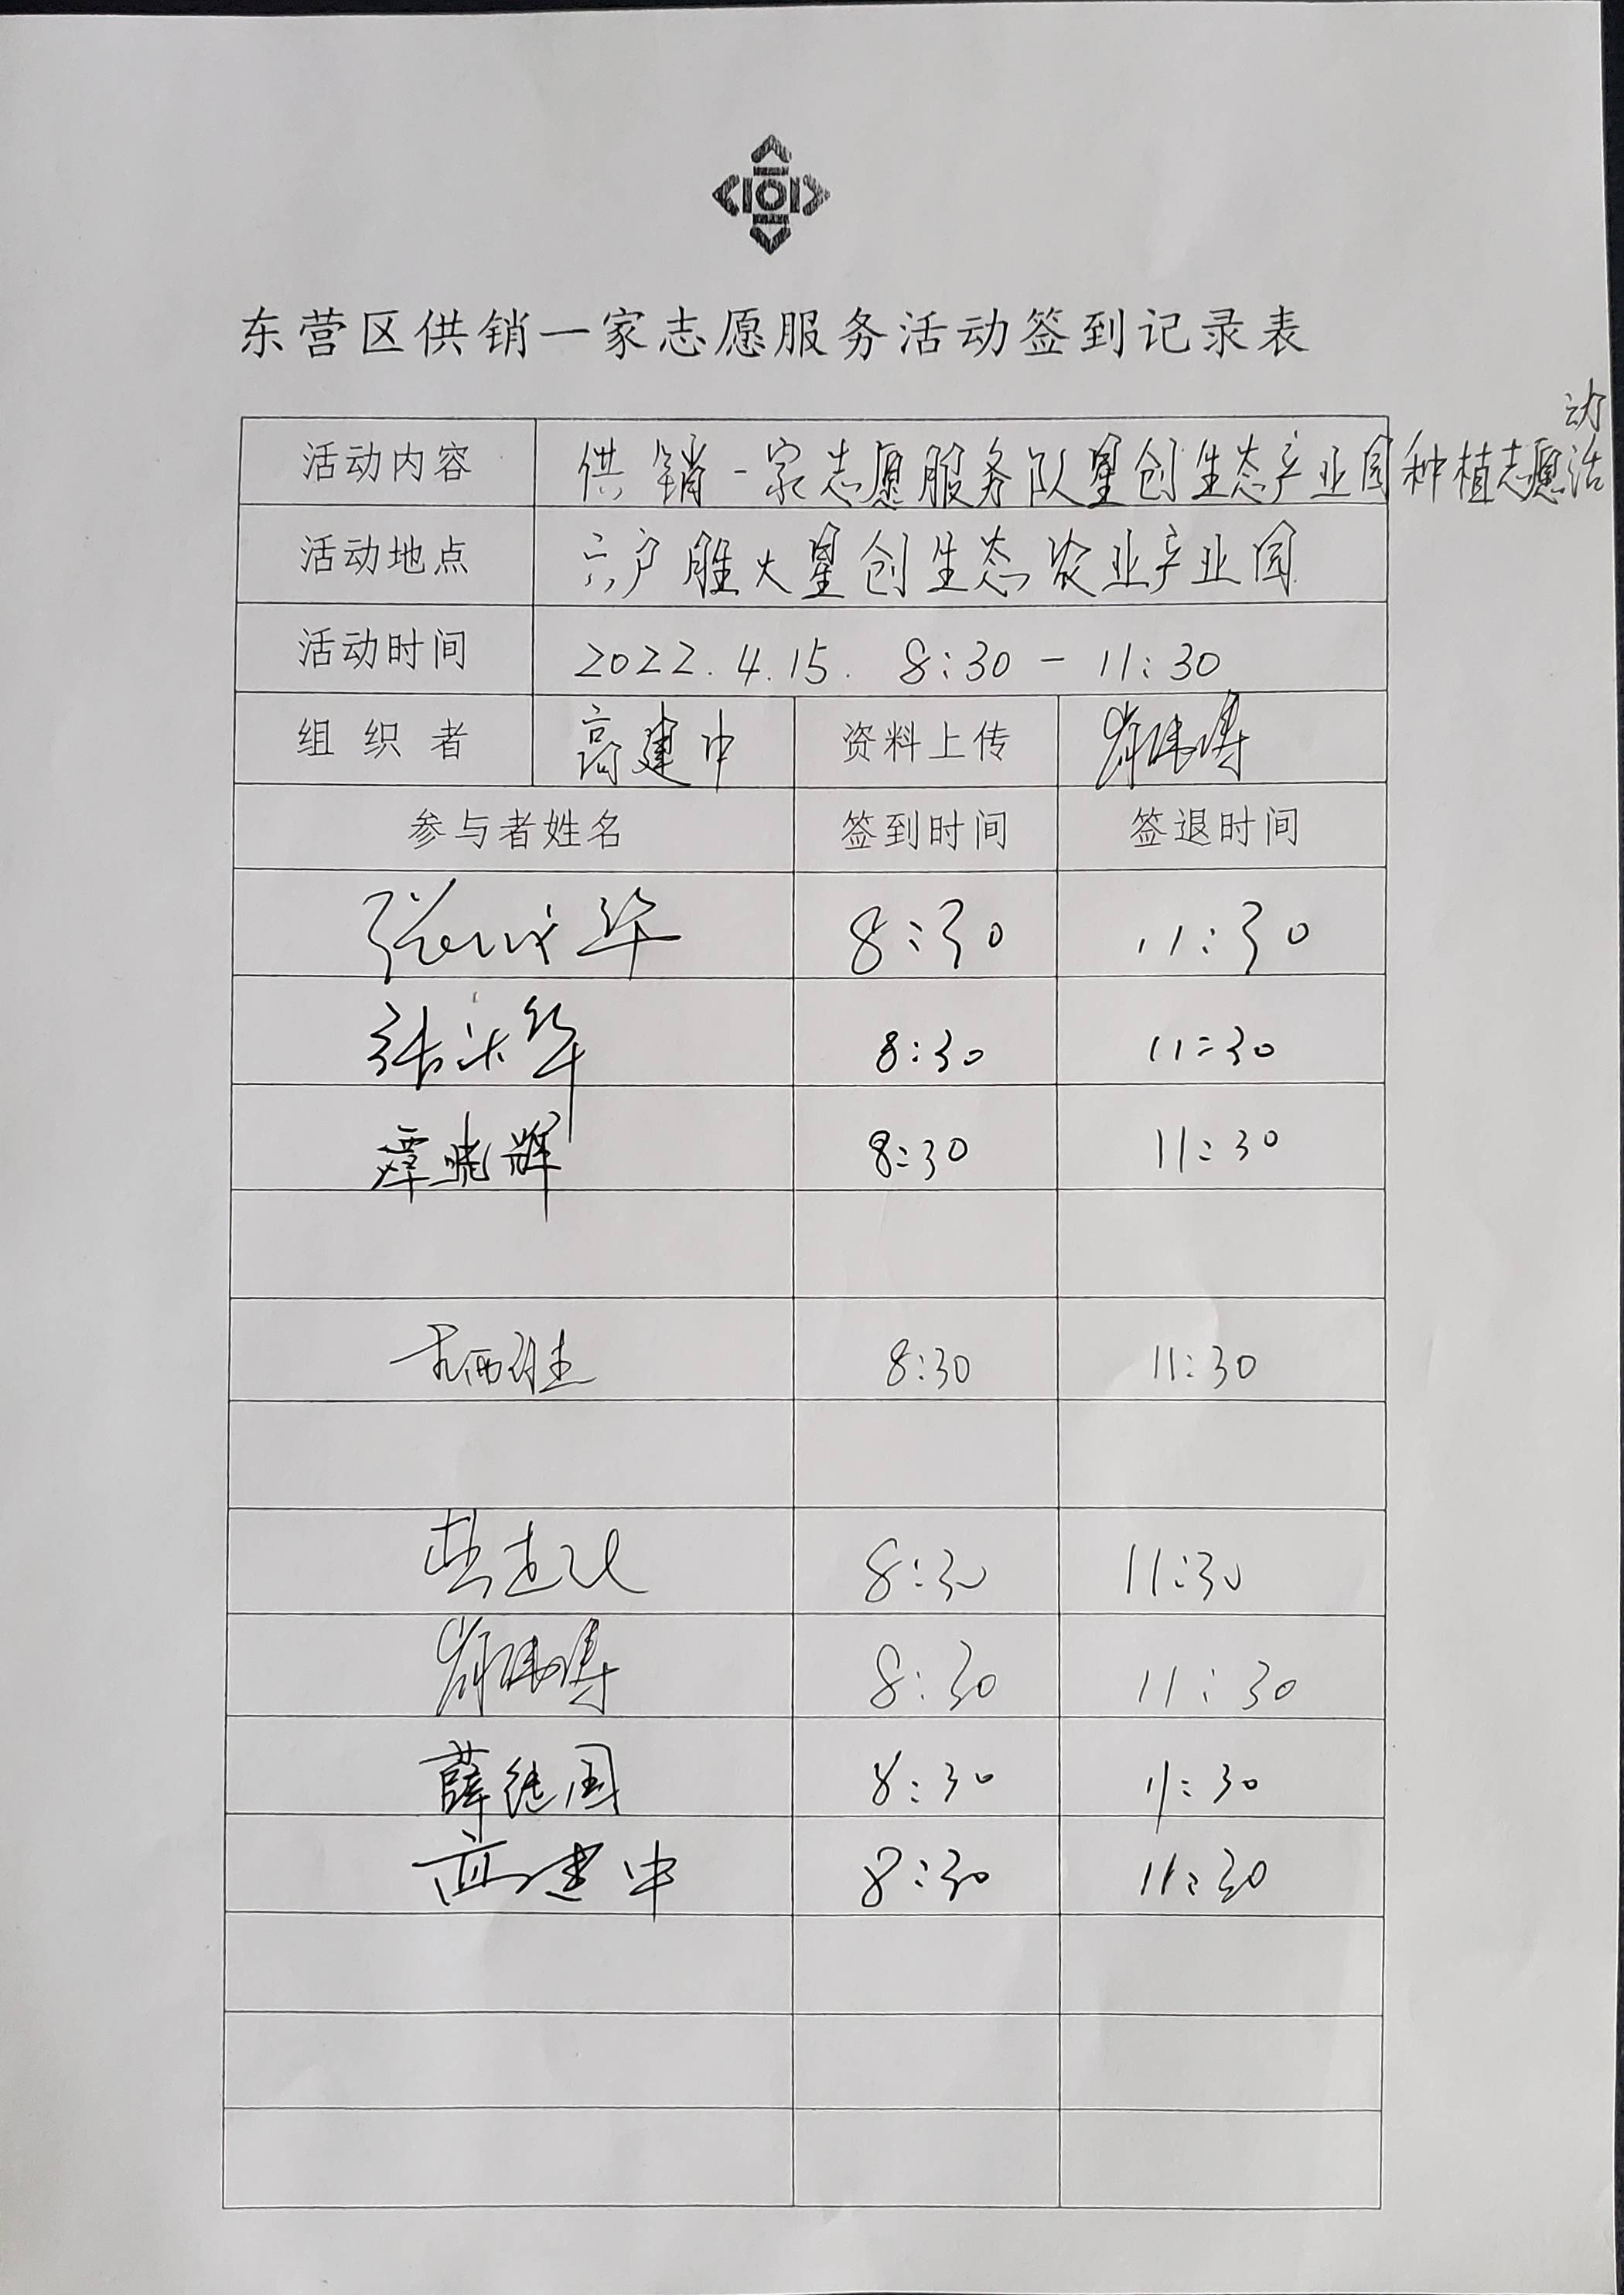 东营区供销一家志愿服务活动签到记录表
动
活动内容 供销一家志愿服务队星创生态产业园种植志愿活
活动地点 六户胜大星创生态农业产业园
活动时间 2022.4.15. 8:30-11:30
组织者 高建中 资料上传
参与者姓名 签到时间 签退时间
张 华 8:30 11:30
张 华 8:30 11:30
覃晓辉 8:30 11:30
8:30 11:30
8:30 11:30
8:30 11:30
薛继国 8:30 11:30
高建中 8:30 11:30